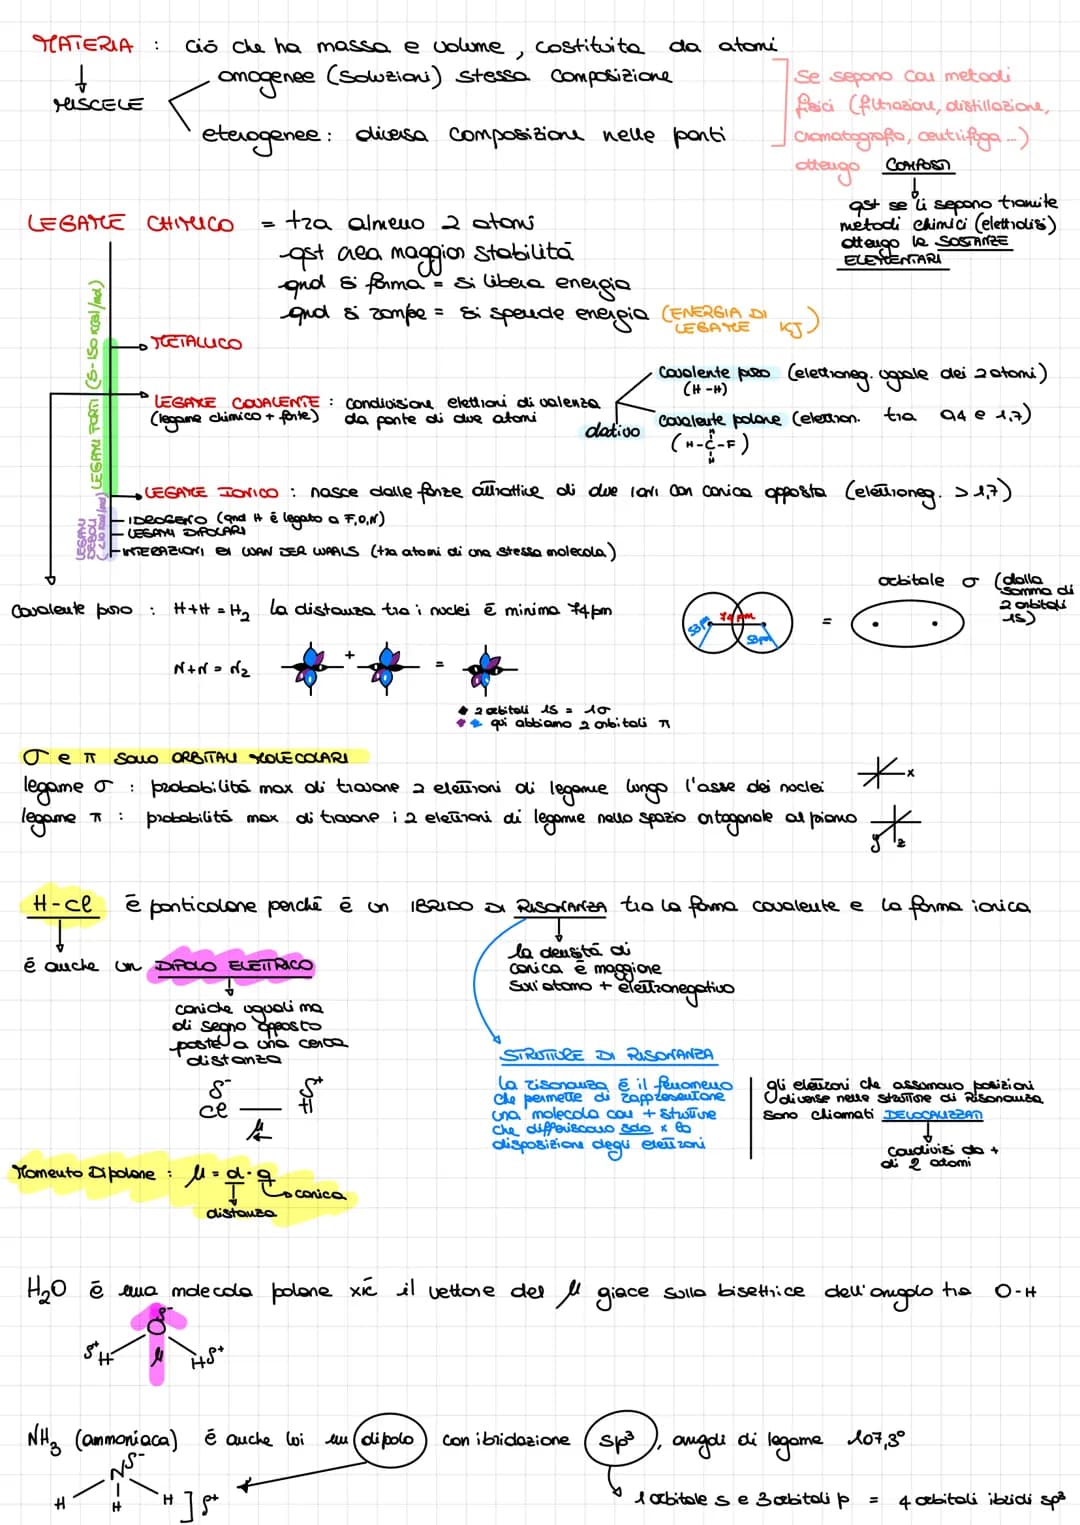 MATERIA : ciò che ha massa e volume, costituita da atomi
MISCELE
omogenee (soluzioni) stessa composizione
eterogenee: diversa composizione nelle parti
se separo cou metodi
fisici (filtrazione, distillazione,
cromatografia, centrifuga ...)
ottengo COMPOSTI
qst se li separo tramite
metodi chimici (elettrolisi)
ottengo le SOSTANZE
ELEMENTARI
LEGAME CHIMICO = tra almeno 2 atomi
- qst crea maggior stabilità
- qnd si forma = si libera energia
- qnd si rompe = si spende energia (ENERGIA DI
LEGAME KJ)
LEGAMI FORTI (5-150 kcal/mol)
METALLICO
LEGAME COVALENTE : condivisione elettroni di valenza
(legame chimico + forte) da parte di due atomi
dativo
Covalente puro (elettroneg. uguale dei 2 atomi)
(H-H)
Covalente polare (elettron. tra 0,4 e 1,7)
(H-C-F)
H
H
LEGAME IONICO : nasce dalle forze attrattive di due ioni con carica opposta (elettroneg. > 1,7)
LEGAMI
DEBOLI
IDROGENO (qnd H è legato a F,O,N)
LEGAMI DIPOLARI
INTERAZIONI DI WAN DER WAALS (tra atomi di una stessa molecola)
Covalente puro : H+H = H₂ La distanza tra i nuclei è minima 74pm
53pm
74 pm
53pm
=
orbitale σ (dalla
somma di
2 orbitali
1S)
N+N = N₂
+
=
2 orbitali 1S = 1σ
qui abbiamo 2 orbitali π
σ e π sono ORBITALI MOLECOLARI
legame σ : probabilità max di trovare 2 elettroni di legame lungo l'asse dei nuclei
x
legame π : probabilità max di trovare i 2 elettroni di legame nello spazio ortogonale al piano
y z
H-Cl è particolare perchè è un IBRIDO DI RISONANZA tra la forma covalente e la forma ionica
è anche un DIPOLO ELETTRICO
la densità di
carica è maggiore
sull'atomo + elettronegativo
cariche uguali ma
di segno opposto
poste a una certa
distanza
δ⁻ δ⁺
Cl — H
μ
STRUTTURE DI RISONANZA
La risonanza è il fenomeno
che permette di rappresentare
una molecola cou + strutture
che differiscono solo x la
disposizione degli elettroni
gli elettroni che assumono posizioni
diverse nelle strutture di Risonanza
sono chiamati DELOCALIZZATI
condivisi da +
di 2 atomi
Momento Dipolare : μ = d · q
carica
distanza
H₂O è una molecola polare xké il vettore del μ giace sulla bisettrice dell'angolo tra O-H
δ⁻
O
δ⁺H μ Hδ⁺
NH₃ (ammoniaca) è anche lei un dipolo con ibridazione sp³, angoli di legame 107,3°
Nδ⁻
H H H ] δ⁺
1 orbitale s e 3 orbitali p = 4 orbitali ibridi sp³